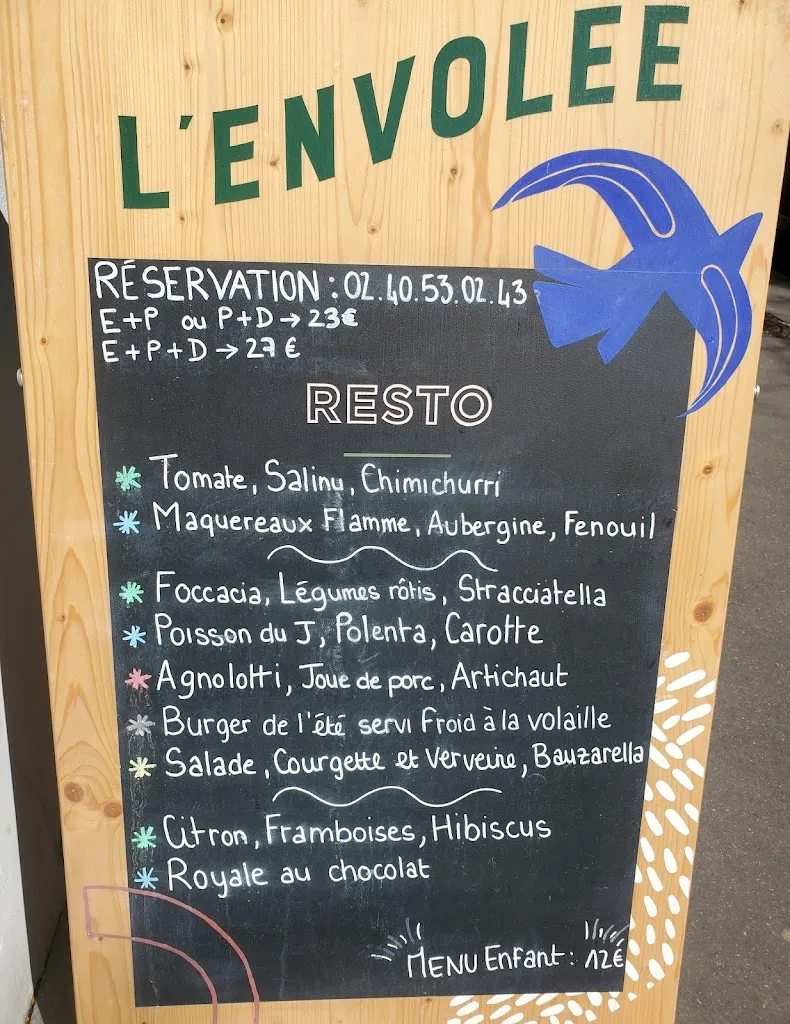 L'ENVOLEE
RÉSERVATION : 02.40.53.02.43
E+P ou P+D → 23€
E+P+D → 27 €
RESTO
Tomate, Salinu, Chimichurri
Maquereaux Flamme, Aubergine, Fenouil
Foccacia, Légumes rôtis, Stracciatella
Poisson du J, Polenta, Carotte
Agnolotti, Joue de porc, Artichaut
Burger de l'été servi Froid à la volaille
Salade, Courgette et Verveine, Bauzarella
Citron, Framboises, Hibiscus
Royale au chocolat
MENU Enfant : 12€